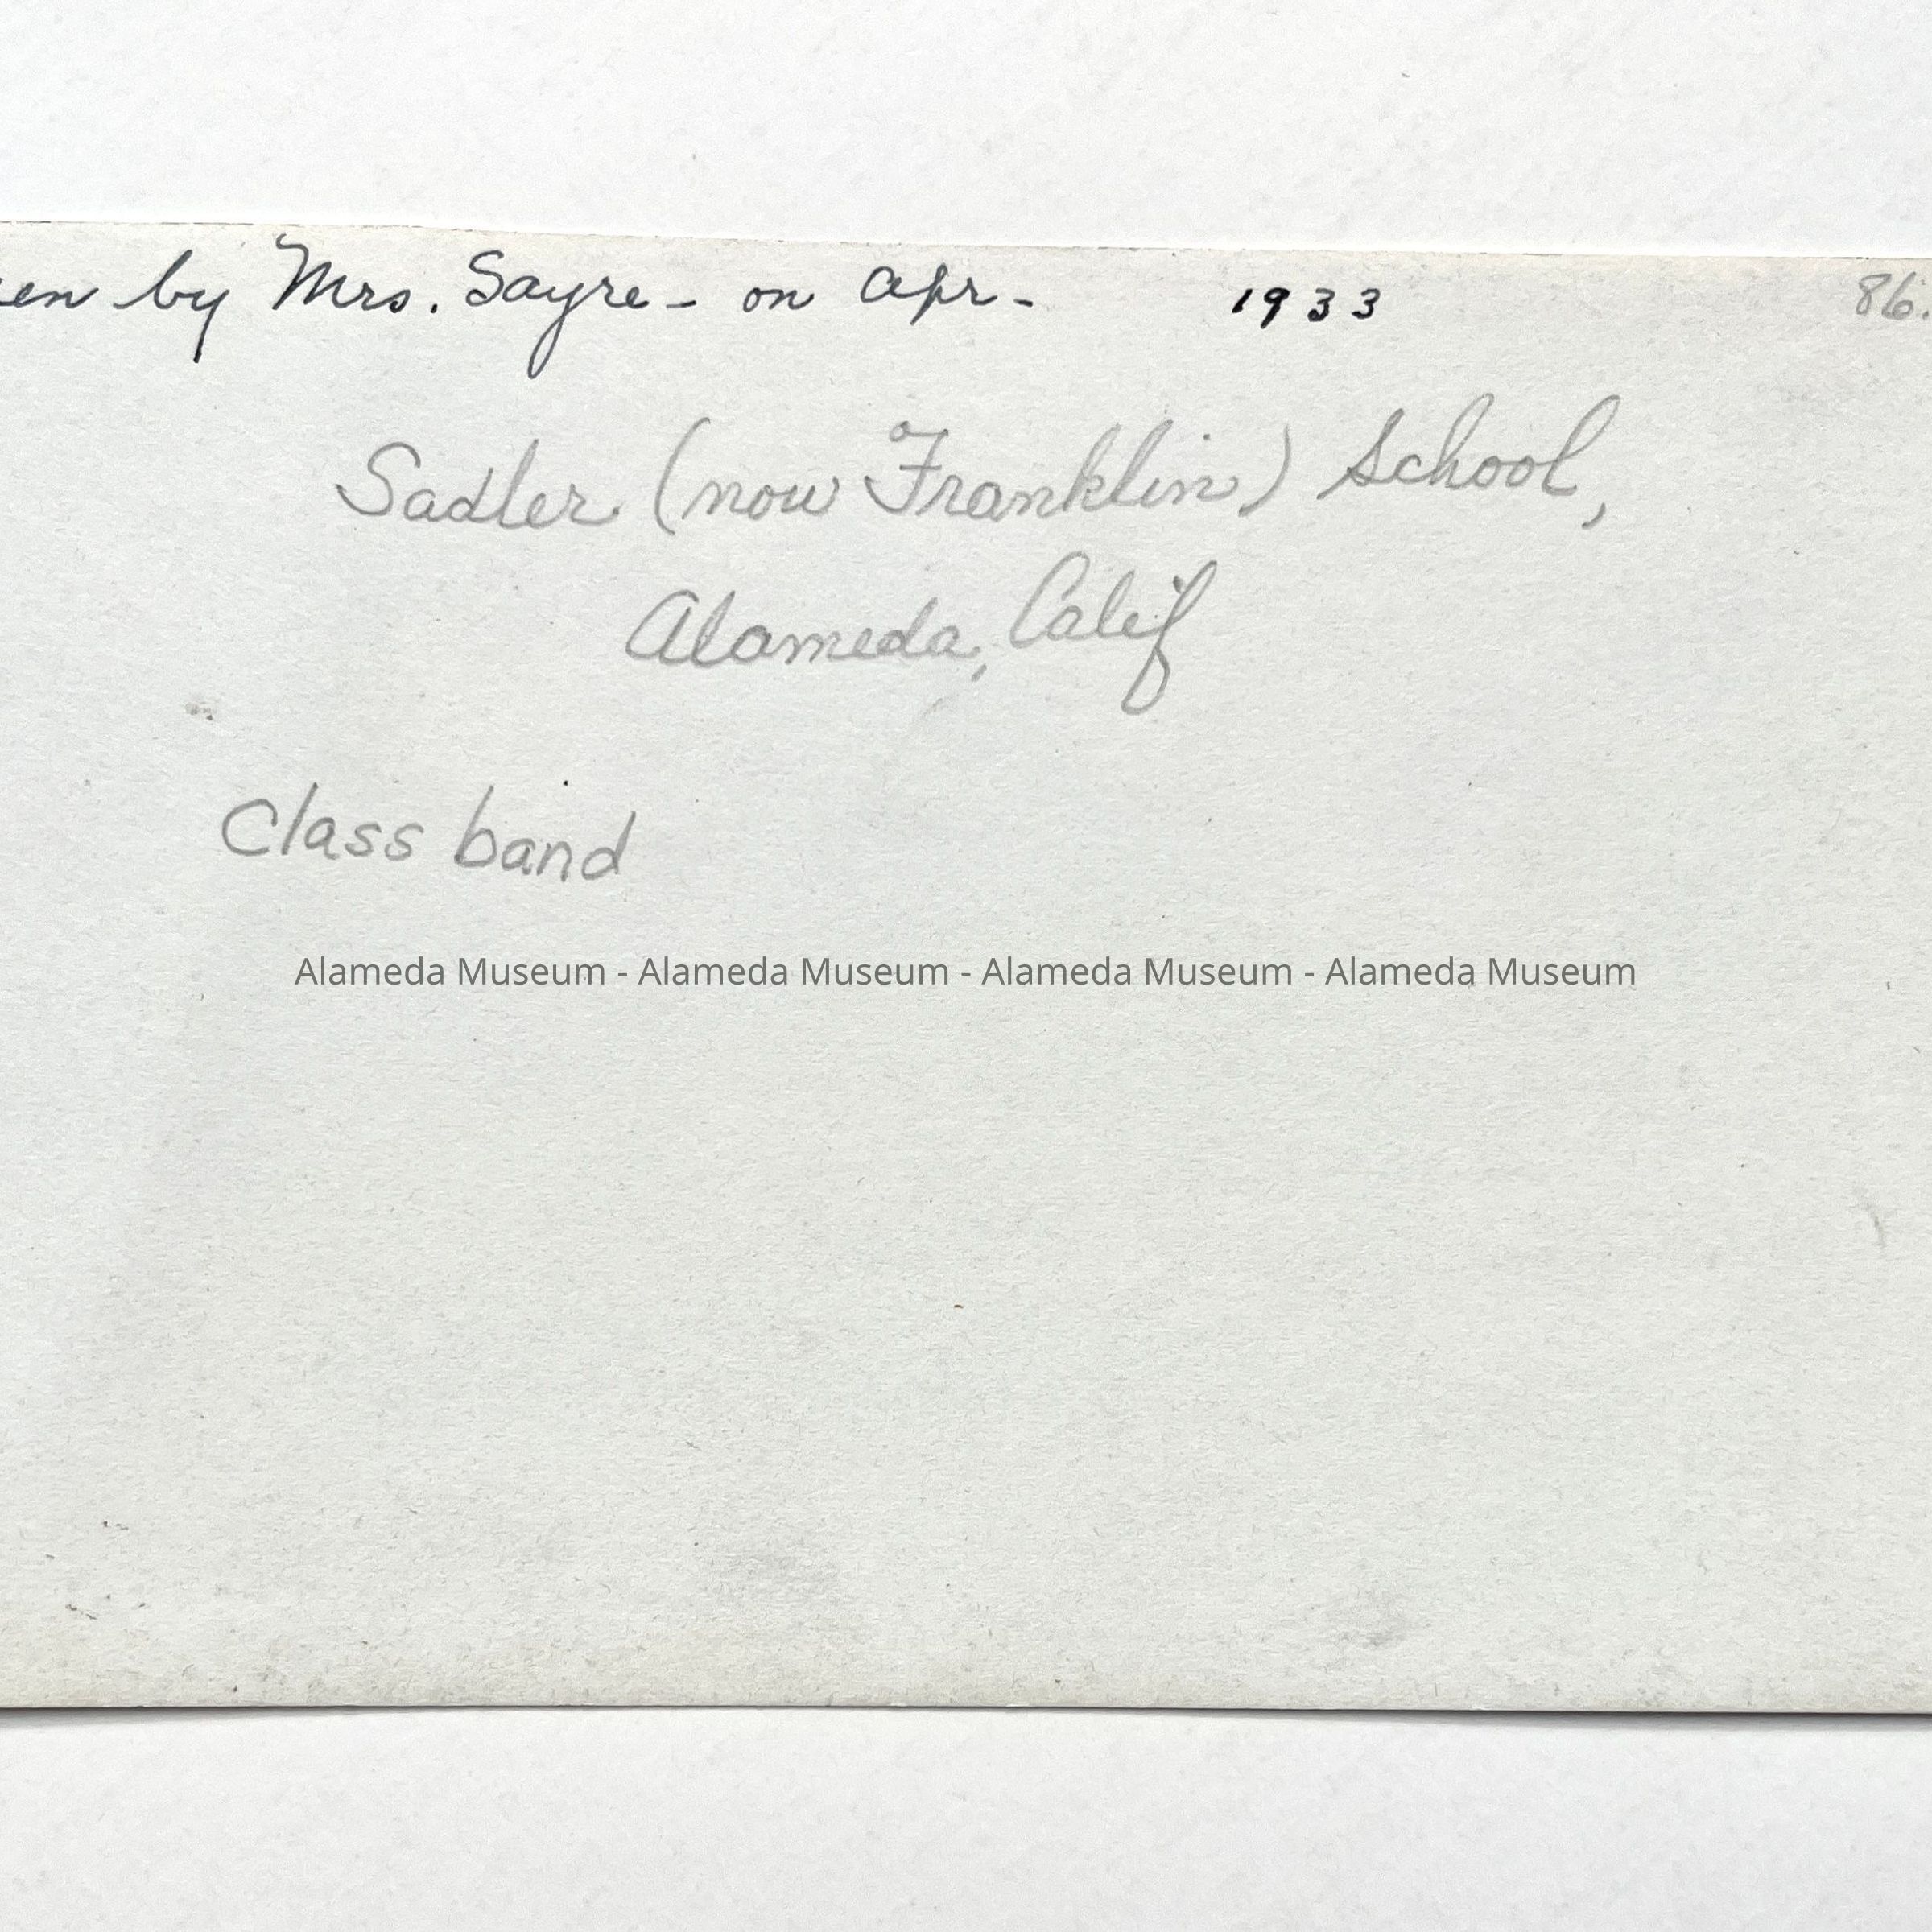 en by Mrs. Sayre - on Apr - 1933 86.
Sadler (now Franklin) School,
Alameda, Calif
Class band
Alameda Museum - Alameda Museum - Alameda Museum - Alameda Museum